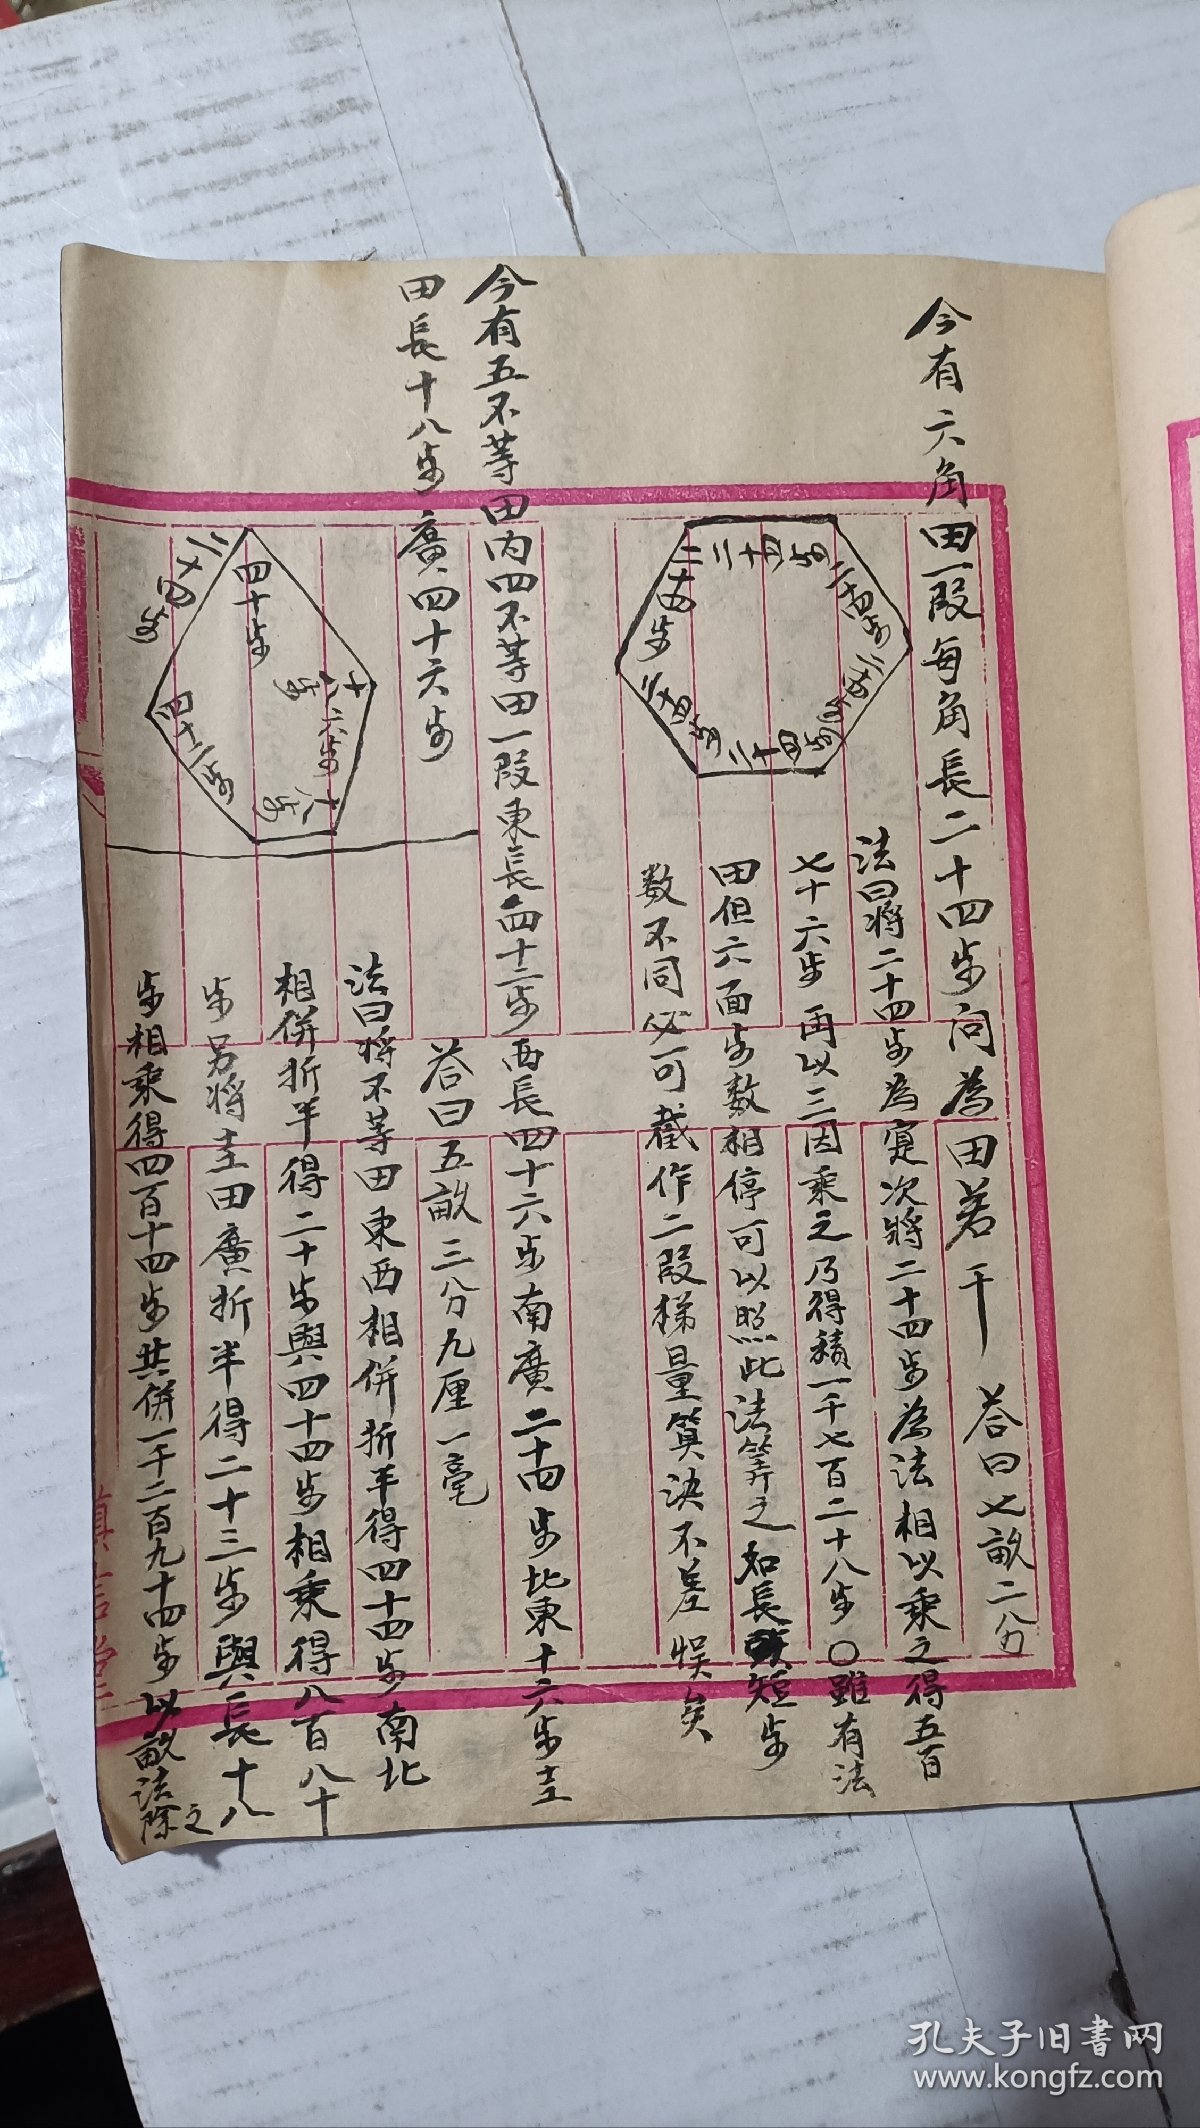 今有六角田一段每角長二十四步问為田若干
荅曰七畝二分
二十四步
二十四步
二十四步
二十四步
法曰將二十四步為寔次將二十四步為法相以乘之得五百
七十六步再以三因乘之乃得積一千七百二十八步〇雖有法
田但六面步数相停可以照此法筭之如長短步
数不同必可截作二段梯量算決不差悞矣
今有五不等田内四不等田一段東長四十二步西長四十六步南廣二十四步北東十六步圭
田長十八步廣四十六步
荅曰五畝三分九厘一毫
四十步
十八步
十六步
法曰將不等田東西相併折半得四十四步南北
相併折半得二十步與四十四步相乘得八百八十
步另將圭田廣折半得二十三步與長十八
步相乘得四百十四步共併一千二百九十四步以畝法除之
孔夫子旧書网
www.kongfz.com